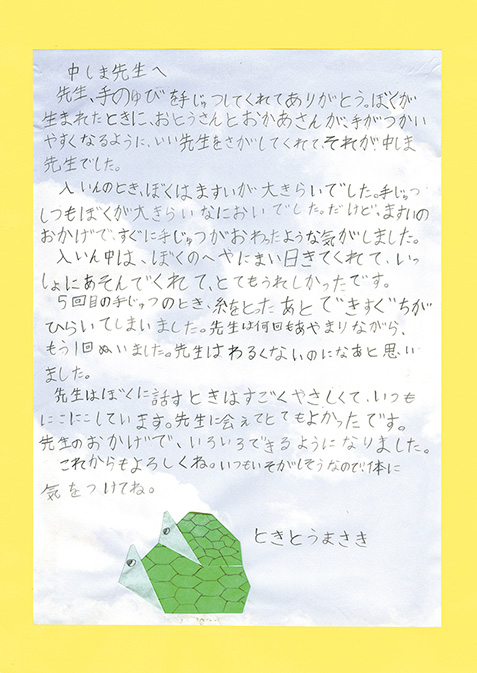 中しま先生へ
先生、手のゆびを手じゅつしてくれてありがとう。ぼくが
生まれたときに、おとうさんとおかあさんが、手がつかい
やすくなるように、いい先生をさがしてくれて、それが中しま
先生でした。
入いんのとき、ぼくはますいが大きらいでした。手じゅつ
しつもぼくが大きらいなにおいでした。だけど、ますいの
おかげで、すぐに手じゅつがおわったような気がしました。
入いん中は、ぼくのへやにまい日きてくれて、いっ
しょにあそんでくれて、とてもうれしかったです。
5回目の手じゅつのとき、糸をとったあとできずぐちが
ひらいてしまいました。先生は何回もあやまりながら、
もう1回ぬいました。先生はわるくないのになあと思い
ました。
先生はぼくに話すときはすごくやさしくて、いつも
にこにこしています。先生に会えてとてもよかったです。
先生のおかげで、いろいろできるようになりました。
これからもよろしくね。いつもいそがしそうなので体に
気をつけてね。
ときとうまさき